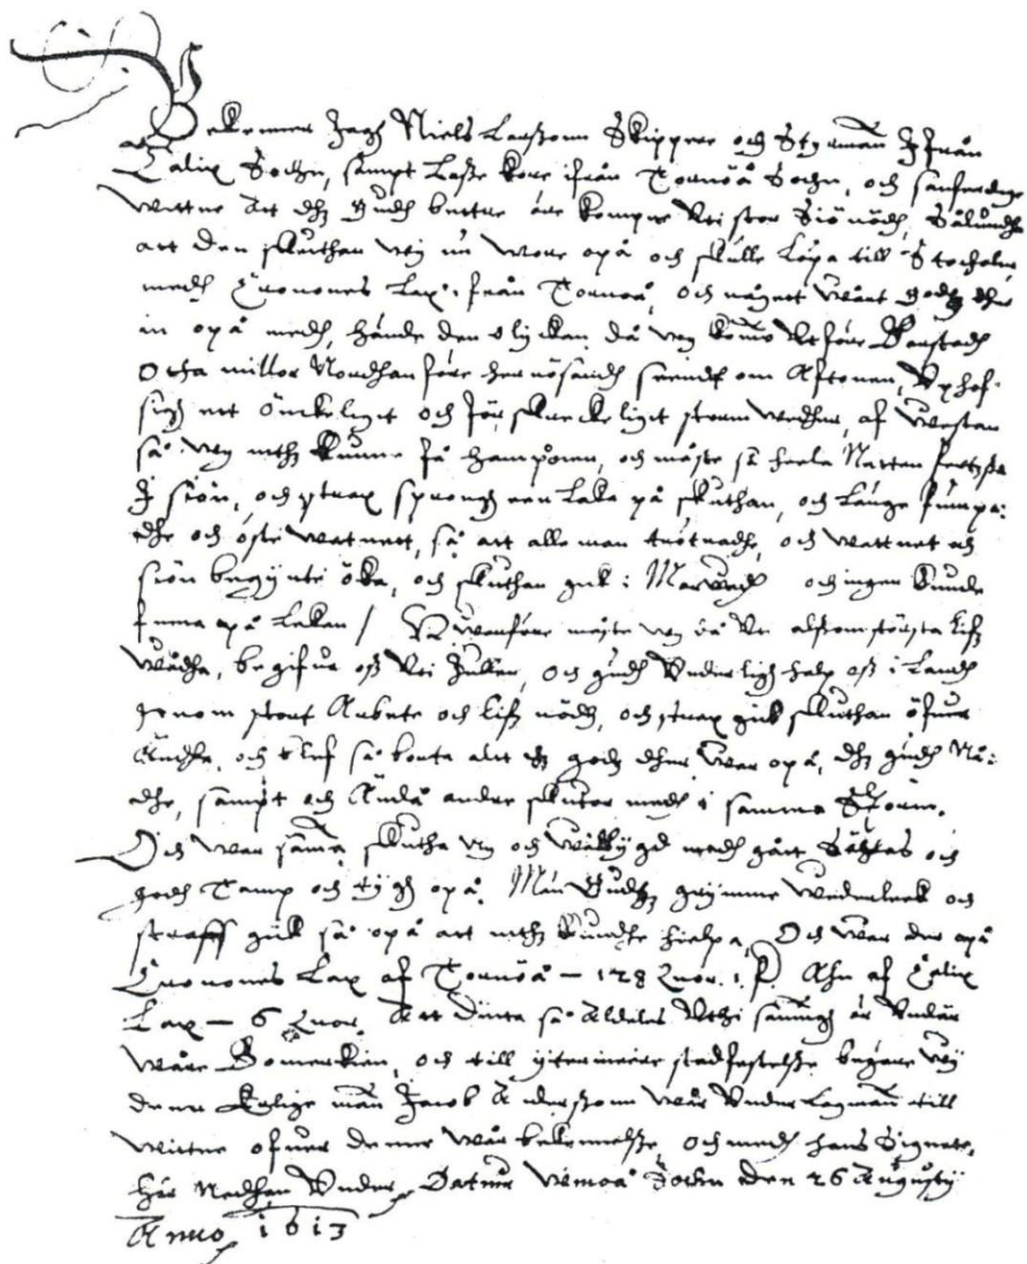 Bekenner Jagh Niels Larsson Skippere och Styrman Ifrån
Calix Sochn, sampt Lasse Kore ifrån Tornöå Sochn, och sanferdige
wittne Att dhz Gudh bettre äre kompne Uti stor Siönödh, Sålundhe
att den skuthan wij nu wore opå och skulle löpa till Stocholm
medh Cronones Lax ifrån Tornöå, och någett wårt godz dher
in opå medh, hände den olyckan då wy komo Utföre
Otta millor Nordhan före hernösandh sendt om Afftonen, Uphof
sigh ett Önckeligit och förskreckeligit storm wedher, af Westan
så wy inthz kunne få hampnen, och måste så heela Natten
I siön, och strax sprongh een Laka på skuthan, och Länge pumpa:
dhe och öste watnett, så att alle man tröttnadhe, och wattnet och
siön begynte öka, och skuthan gik i och ingen kunde
finna opå Lakan / Hwarföre måste wy då Uti alsomstörsta lifz
wådha, begifua oss Uti Jullen, och gudh Underligh halp oss i Landh
genom stort Arbete och lifz nödh, och strax gick skuthan öfuer
Ändha, och bleff så borta alt dz godz dher war opå, dhz gudh Nå:
dhe, sampt och andre skutor medh i samma Storm.
Och war samma skutha ny och wälbygd medh gått och
godh Tamp och tygh opå. Män Gudz grymme wederleek och
straff gick så opå att inthz kundhe hielpa, Och war der opå
Cronones Lax af Tornöå – 128 af Calix
Lax – 6 Att Dätta så Aldeles Uthi sanningh är Under
wåre Bomerkien, och till yttermeire stadfestelsse begäre wij
denn Erlige man Jacob Andersonn wår Underlagman till
wittne ofuer denne wår bekennelsse, och medh hans Signete
här Nedhan Under. Datum Sochn den 26 Augusty
Anno 1613